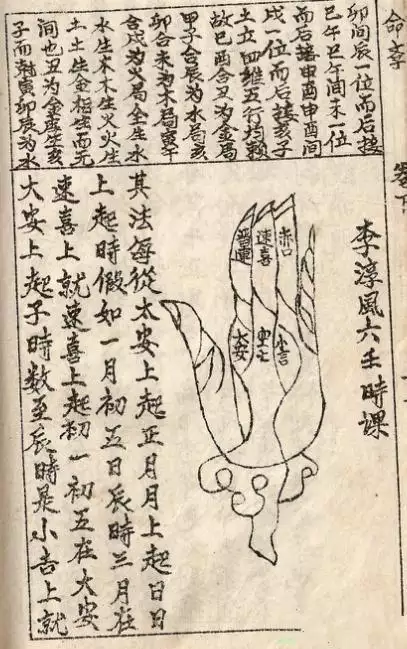 卷下
卯間辰一位而后接
巳午巳午間未一位
而后接申酉申酉間
戌一位而后接亥子
土立四維五行均賴
故巳酉合丑為金局
甲子合辰為水局亥
卯合未為木局寅午
合戌為火局金生水
水生木木生火火生
土土生金相生而无
間也丑為金局生亥
子而射寅卯辰為水
李淳風六壬時課
赤口
速喜
小吉
空亡
大安
其法每從太安上起正月月上起日日
上起時假如一月初五日辰時三月在
速喜上就速喜上起初一初五在大安
大安上起子時数至辰時是小吉上就